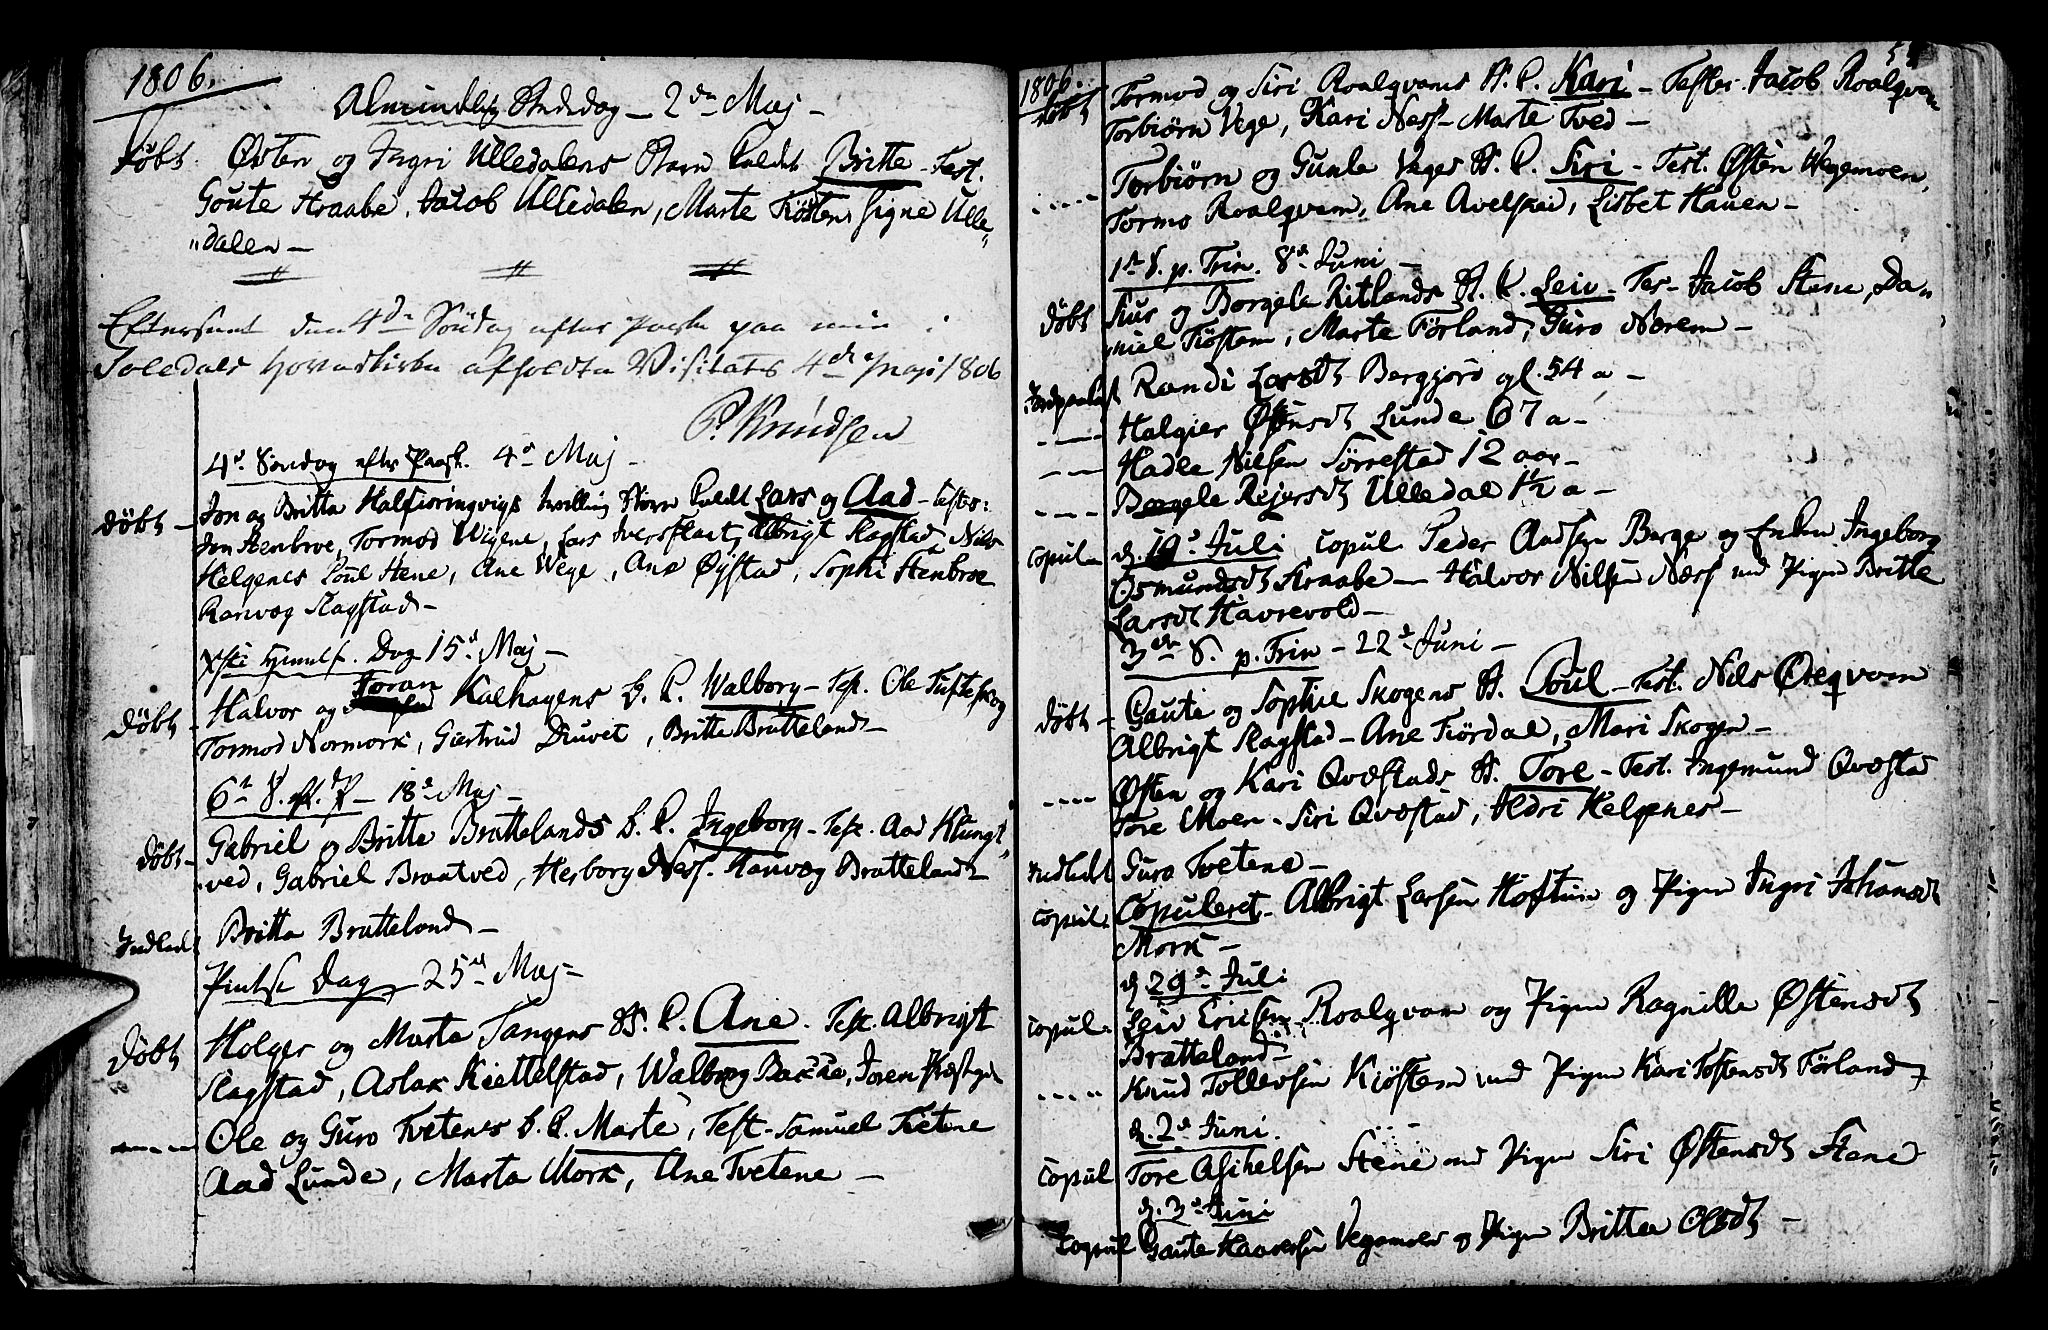 1806.
Almindelig Bededag – 2den Maj –
Döbt. Östen og Ingri Ulledalens Barn kaldet Britte – Test.
Goute Straabe, Jacob Ulledalen, Marte Kiöstens Signe Ulle„
„dalen –
Efterseet den 4de Söndag efter Paaske paa min i
Soledals Hovedkirke afholdte Visitats 4de Maji 1806
P. Knudsen
4d. Söndag efter Paask. 4d Maj –
Döbt – Jon og Britta Halfioringvigs tvilling Börn kaldt Lars og Aad – Testes:
Jon Stenbroe, Tormod Wigene, Lars Iversflaat, Albrigt Slagstad Nils
Helgenes Poul Stene, Ane Wege, Ane Öystad, Sophi Stenbroe
Ranvæg Slagstad –
Xsti Himmelf. Dag 15d Maj –
Döbt – Halvor og Joran Kalhagens b. k. Walborg – Test. Ole Tufteskog
Tormod Normork, Giertrud Diuvet, Britte Bratteland –
6te S. eft. P – 18d Maj –
Döbt – Gabriel og Britte Brattelands b. k. Ingeborg – Test. Aad Klungt„
„ved, Gabriel Braatved, Herborg Næss. Ranvæg Bratteland –
Indledt Britta Bratteland –
Pintse Dag – 25d Maj –
Döbt Holger og Marta Tangens B. k. Ane. Test. Albrigt
Slagstad, Aslak Kiettelstad, Walborg Bakke, Joren
---- Ole og Guro Tvetenes b. k. Marte, Test – Samuel Tvetene
Aad Lunde, Marta Mork, Ane Tvetene –
1806.
Döbt Tormod og Siri Roalqvams B. k. Kari – Testes. Jacob Roalqvam
Torbiörn Vege, Kari Næss – Marte Tved –
---- Torbiörn og Gunla Veges B. k. Siri – Test. Östen Wegemoen,
Tormo Roalqvam, Ane Avelskad, Lisbet Hauen –
1st S. p. Trin. 8d Juni –
Döbt Siur og Borgele Ritlands B. k. Leiv – Tes – Jacob Stene, Da„
„niel Kiöstem, Marte Förland, Guro Nærem –
Jordpaakast Randi Larsdt Bergjord gl. 54 a –
---- Halgier Östensdt Lunde 67 a –
---- Hadle Nilsen Sörrestad 12 aar –
---- Borgele Rejersdt Ulledal 1½ a –
Copul – d. 19d Juli copul Peder Aadsen Berge og Enken Ingeborg
Osmundsdt Straabe – Halvor Nilsen Næss med Pigen Britte
Larsdt Havrevold –
3die S. p. Trin – 22d Juni –
Döbt – Gaute og Sophie Skogens B. Poul – Test. Nils Öreqvam
Albrigt Slagstad – Ane Fiördal, Mari Skogen –
---- Östen og Kari Qvæstads B. Tore – Test. Ingemund Qvæstad
Tore Moen – Siri Qvæstad, Ildri Helgenes –
Indledt Guro Tvetene –
Copul. Copuleret – Albrigt Larsen Höftun og Pigen Ingri Johansdt
Mork –
d. 29d Juli
Copul. Leiv Ericsen Roalqvam og Pigen Ragnille Östensdt
Bratteland –
---- Knud Tollevsen Kiöstem med Pigen Kari Tostensdt Förland –
d. 2d Juni.
Copul Tore Aschelsen Stene med Pigen Siri Östensdt Stene
d. 3d Juni
Copul Gaute Haaversen Vegemoen og Pigen Britta Olsdt –